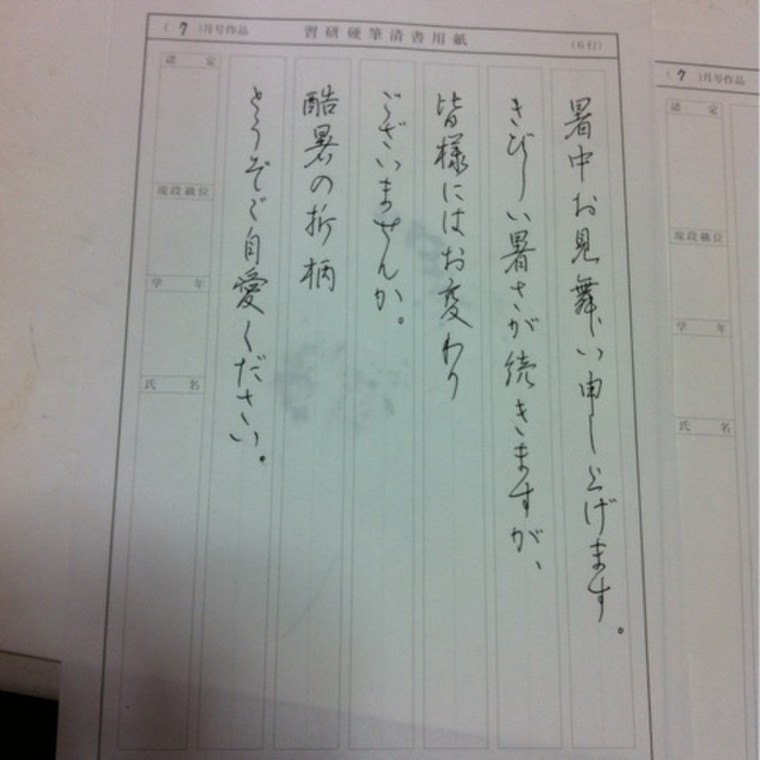 (7)月号作品 習研硬筆清書用紙 (6行)
暑中お見舞い申し上げます。
きびしい暑さが続きますが、
皆様にはお変わり
ございませんか。
酷暑の折柄
どうぞご自愛ください。
認定
現段級位
学年
氏名
(7)月号作品
認定
現段級位
学年
氏名